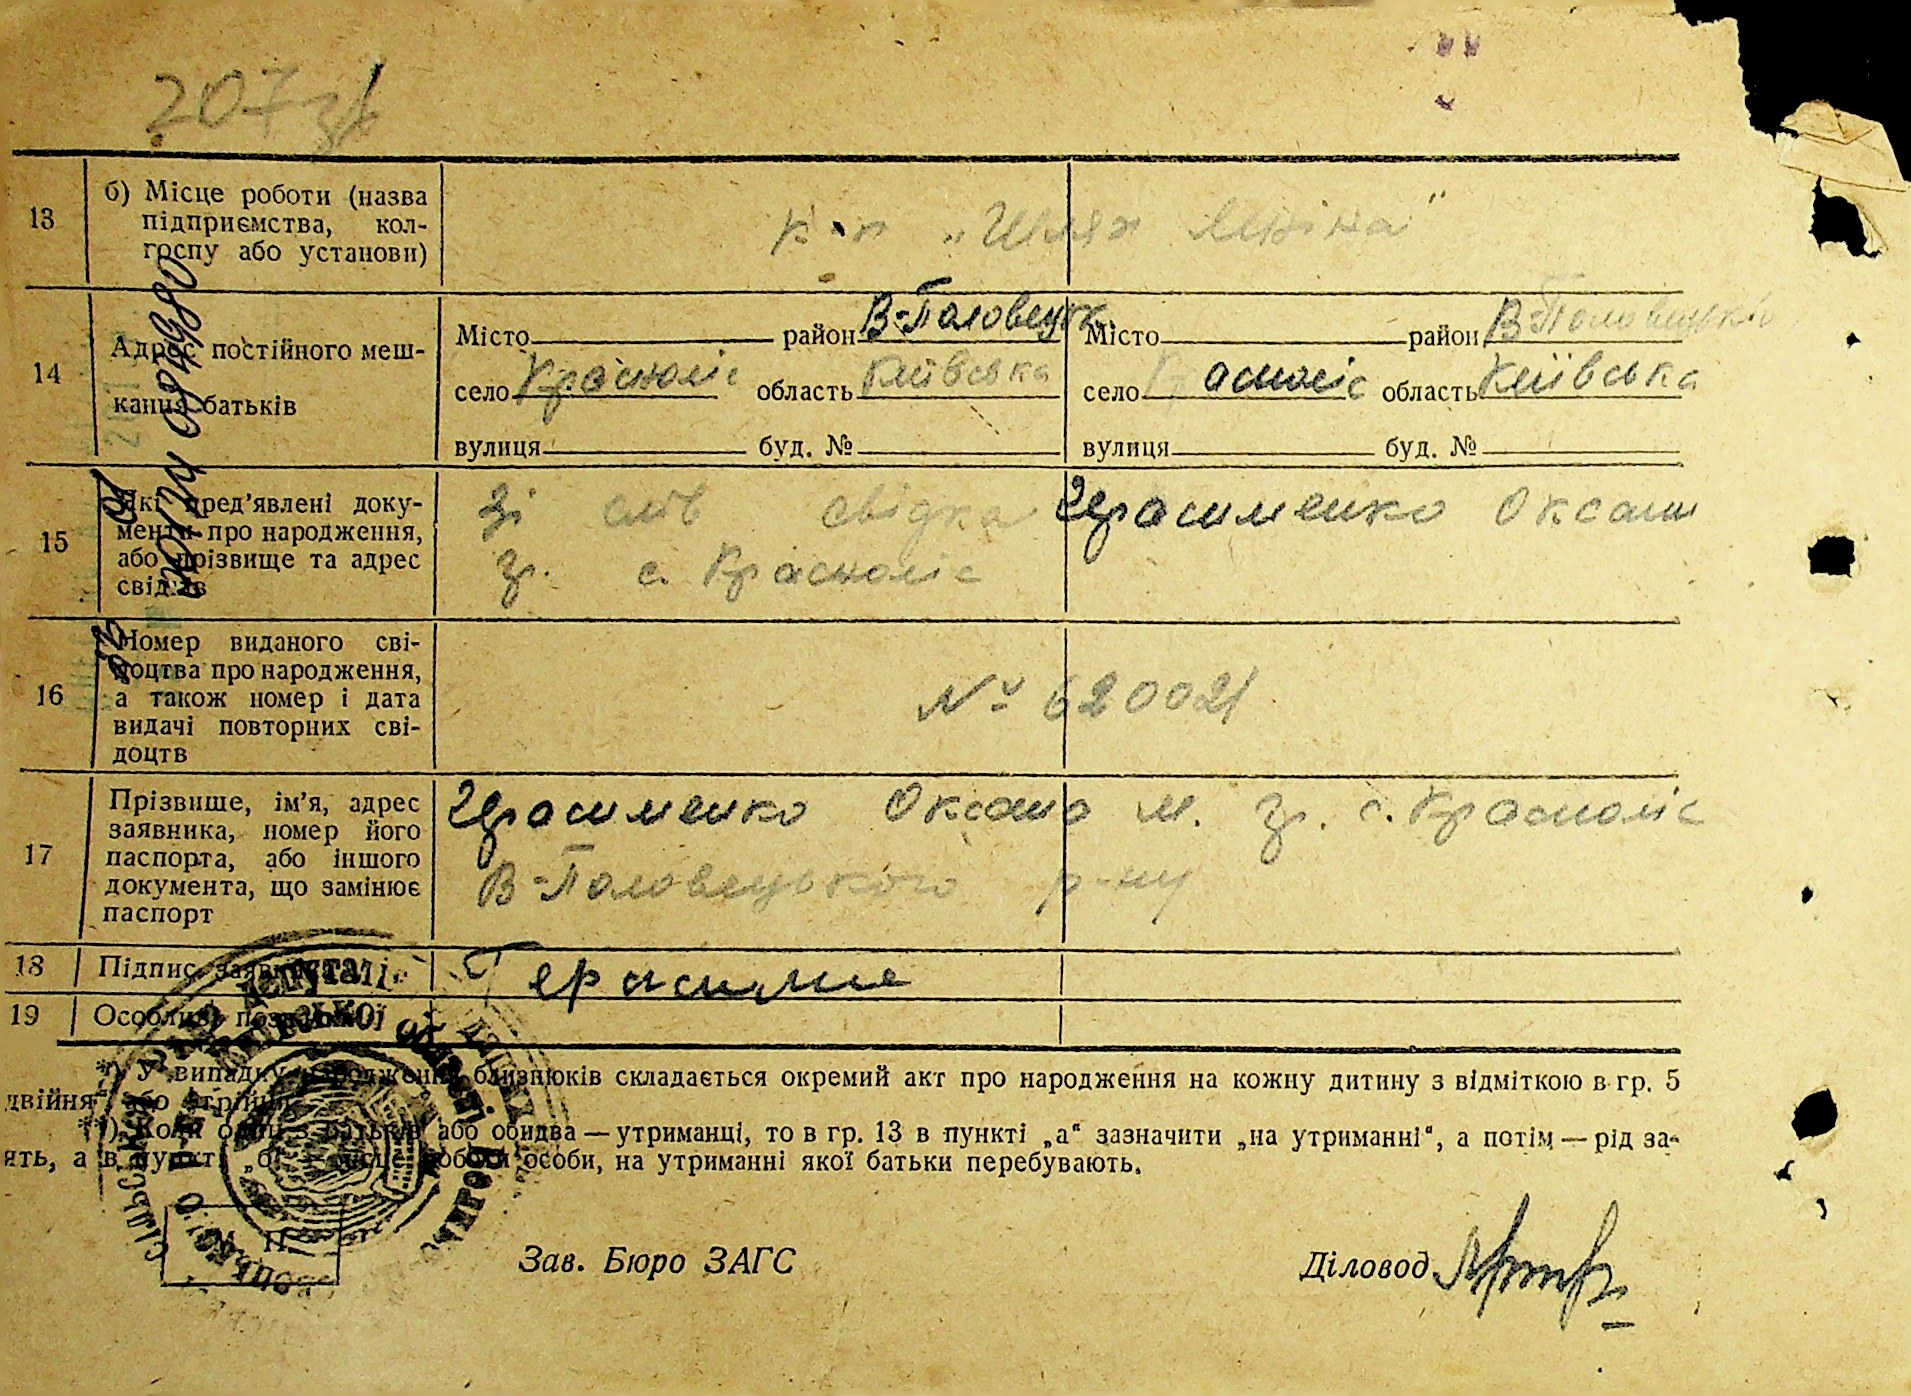 207 зв
13 б) Місце роботи (назва
підприємства, кол-
госпу або установи)
к-п „Шлях Леніна"
14 Адрес постійного меш-
кання батьків
Місто район В-Половецьк. Місто район В-Половецький
село Красноліс область Київська село Красноліс область Київська
вулиця буд. № вулиця буд. №
15 Які пред'явлені доку-
менти про народження,
або прізвище та адрес
свідків
Зі слів свідка Герасименко Оксани
гр. с. Красноліс
16 Номер виданого сві-
доцтва про народження,
а також номер і дата
видачі повторних сві-
доцтв
№ 620021
17 Прізвише, ім'я, адрес
заявника, номер його
паспорта, або іншого
документа, що замінює
паспорт
Герасименко Оксана М. гр. с. Красноліс
В-Половецького р-ну
18 Підпис заявника
Герасиме
19 Особливі
*) У випадку народження близнюків складається окремий акт про народження на кожну дитину з відміткою в гр. 5
двійня" або
**) Коли один з батьків або обидва — утриманці, то в гр. 13 в пункті „а" зазначити „на утриманні", а потім — рід за-
ять, а в пункті „б" місце роботи особи, на утриманні якої батьки перебувають.
М. П.
Зав. Бюро ЗАГС Діловод